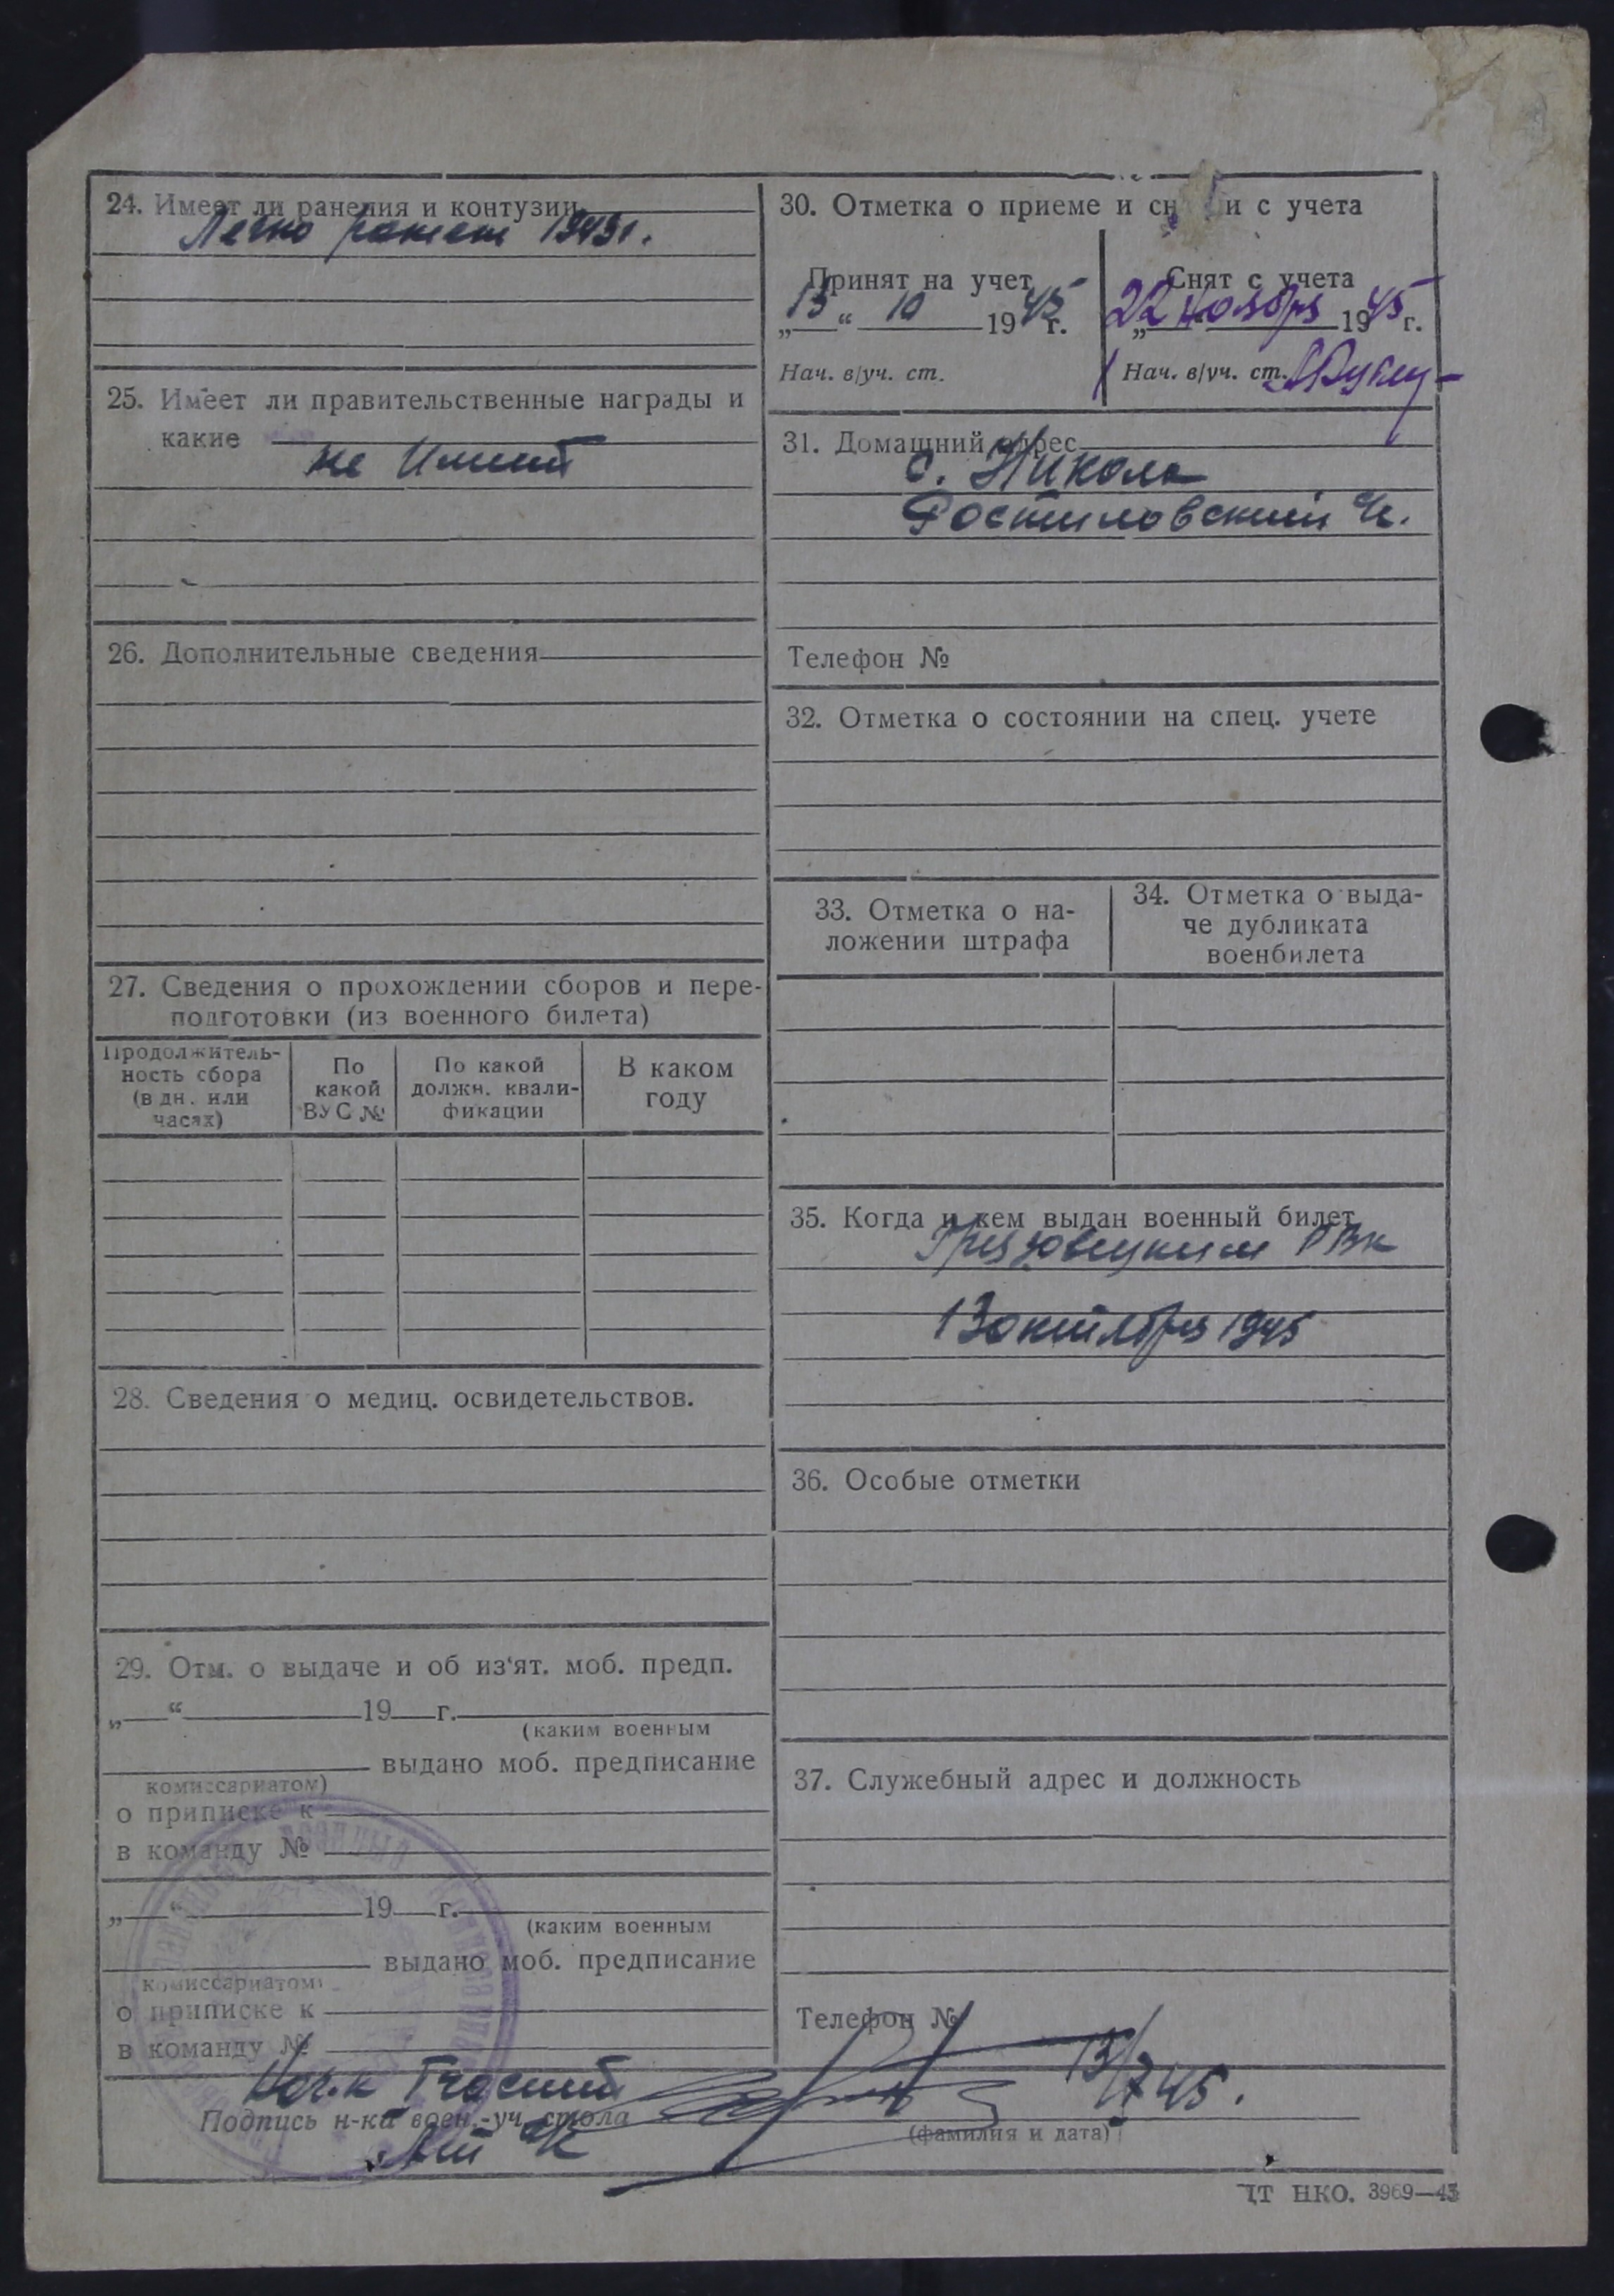 24. Имеет ли ранения и контузии
Легко ранен 1943г.
25. Имеет ли правительственные награды и
какие
не Имеет
26. Дополнительные сведения
27. Сведения о прохождении сборов и пере-
подготовки (из военного билета)
Продолжитель-
ность сбора
(в дн. или
часах)
По
какой
ВУС №
По какой
должн. квали-
фикации
В каком
году
28. Сведения о медиц. освидетельствов.
29. Отм. о выдаче и об из‘ят. моб. предп.
„ “ 19 г.
(каким военным
выдано моб. предписание
комиссариатом)
о приписке к
в команду №
„ “ 19 г.
(каким военным
выдано моб. предписание
комиссариатом)
о приписке к
в команду №
30. Отметка о приеме и сн и с учета
Принят на учет
„13“ 10 1945г.
Нач. в/уч. ст.
Снят с учета
„22 ноября 1945 г.
Нач. в/уч. ст.
31. Домашний адрес
с. Никола
Ростиловский
Телефон №
32. Отметка о состоянии на спец. учете
33. Отметка о на-
ложении штрафа
34. Отметка о выда-
че дубликата
военбилета
35. Когда и кем выдан военный билет
Грязовецким РВК
13 октября 1945
36. Особые отметки
37. Служебный адрес и должность
Телефон №
Нач.
13/ 45.
Подпись н-ка воен.-уч. стола
(фамилия и дата)
НКО. 3969—43